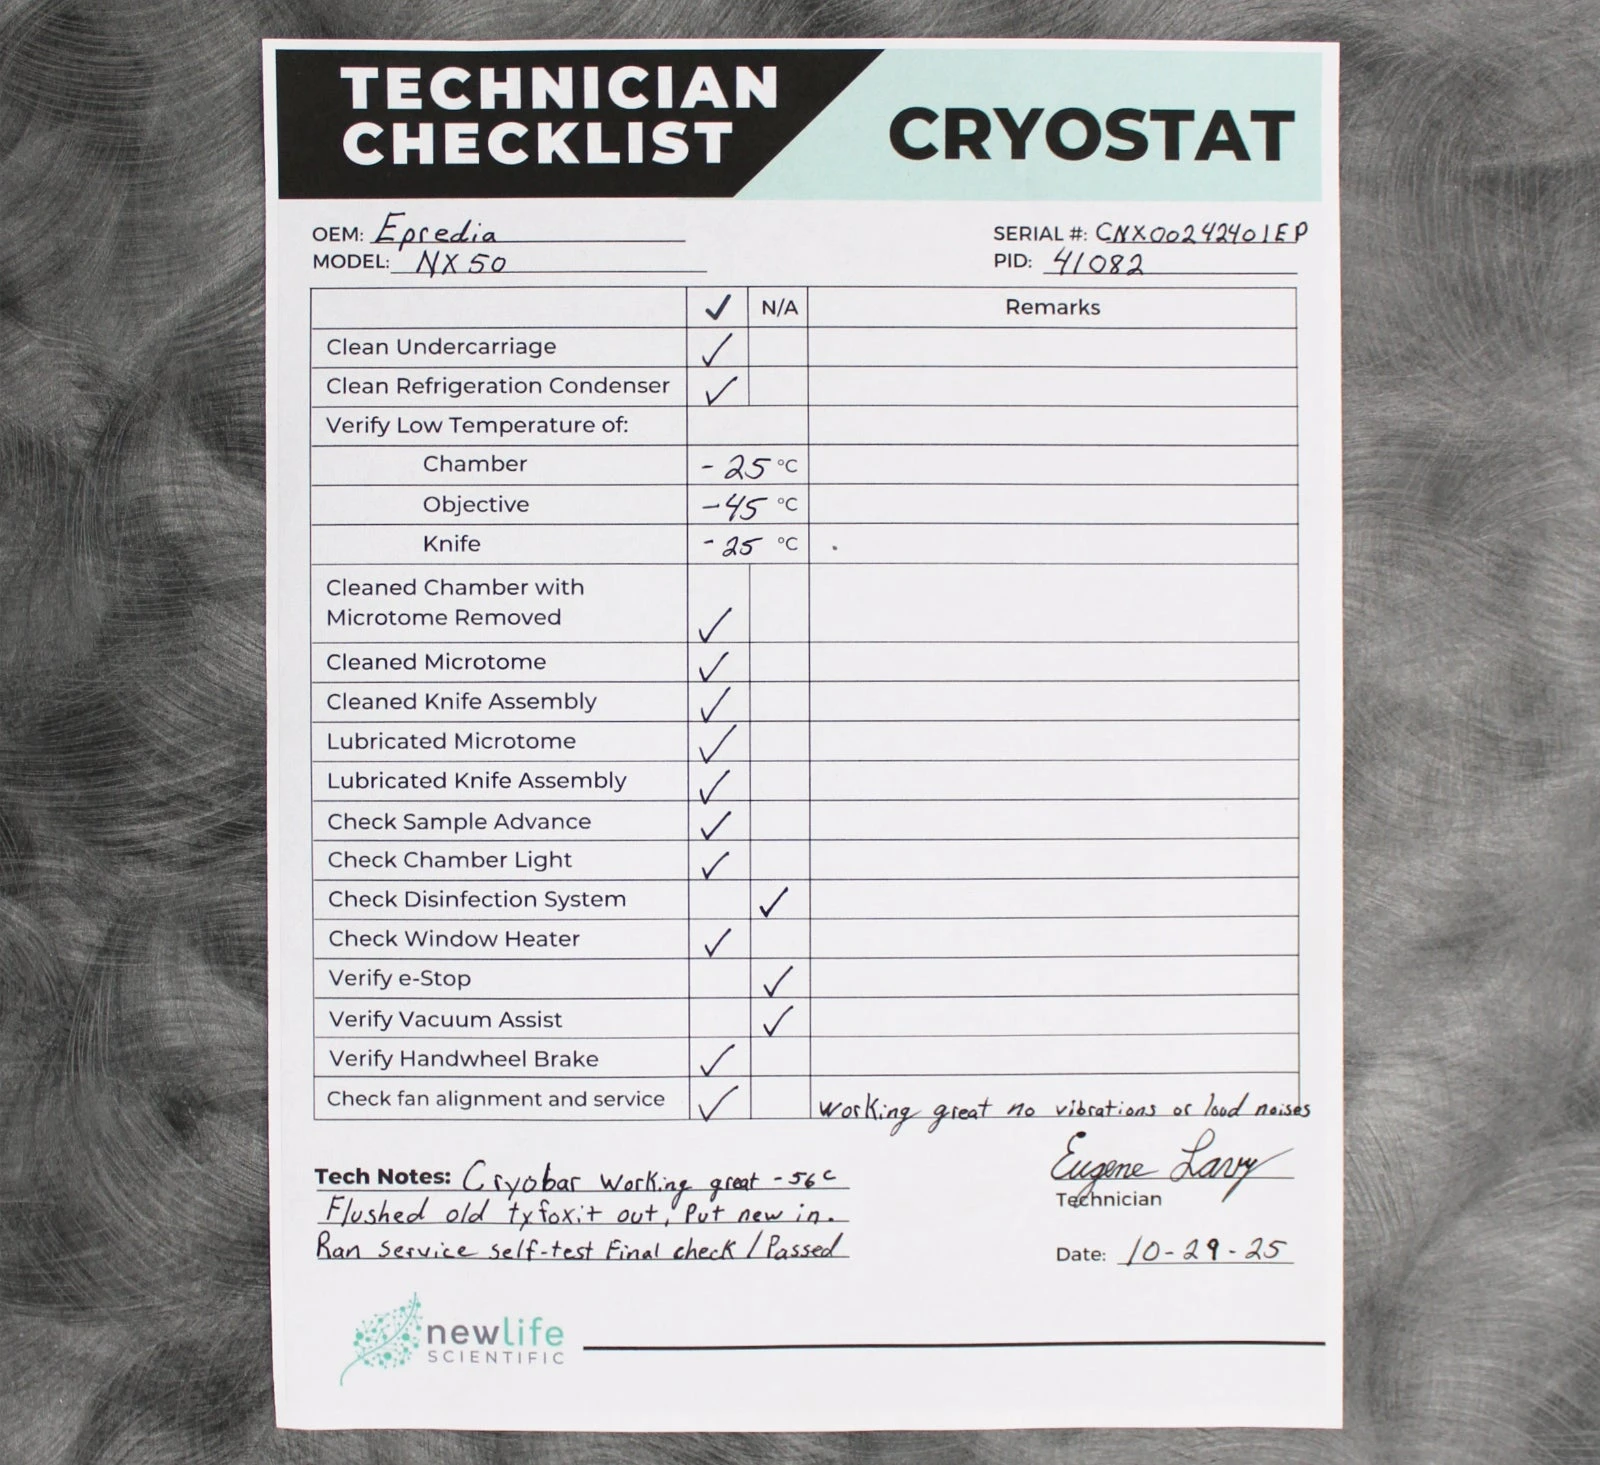 TECHNICIAN
CHECKLIST
CRYOSTAT
OEM: Epredia
SERIAL #: CNX00242401EP
MODEL: NX50
PID: 41082
✓ N/A Remarks
Clean Undercarriage ✓
Clean Refrigeration Condenser ✓
Verify Low Temperature of:
Chamber -25 °C
Objective -45 °C
Knife -25 °C
Cleaned Chamber with
Microtome Removed ✓
Cleaned Microtome ✓
Cleaned Knife Assembly ✓
Lubricated Microtome ✓
Lubricated Knife Assembly ✓
Check Sample Advance ✓
Check Chamber Light ✓
Check Disinfection System ✓
Check Window Heater ✓
Verify e-Stop ✓
Verify Vacuum Assist ✓
Verify Handwheel Brake ✓
Check fan alignment and service ✓ Working great no vibrations or loud noises
Tech Notes: Cryobar working great -56 c
Flushed old tyfoxit out, Put new in.
Ran service self-test Final check / Passed
Eugene Lavy
Technician
Date: 10-29-25
newlife
SCIENTIFIC